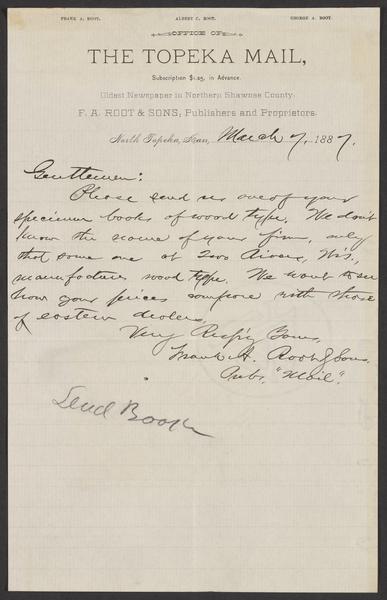 FRANK A. ROOT. ALBERT C. ROOT. GEORGE A. ROOT.
OFFICE OF
THE TOPEKA MAIL,
Subscription $1.25, in Advance.
Oldest Newspaper in Northern Shawnee County.
F. A. ROOT & SONS, Publishers and Proprietors.
North Topeka, Kan., March 7, 1887.
Gentlemen:
Please send us one of your
specimen books of wood type. We don't
know the name of your firm, only
that some one at Two Rivers, Wis.,
manufactures wood type. We want to see
how your prices compare with those
of eastern dealers.
Very Resp'y Yours,
Frank A. Root & Sons.
Pubs. "Mail".
Send Book